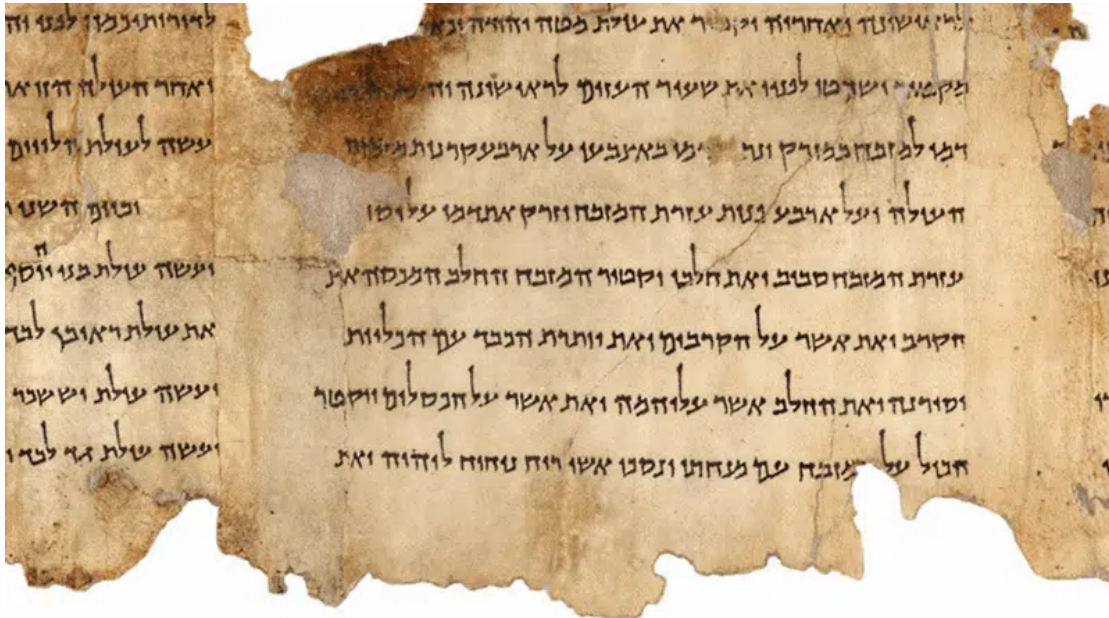 ואחריה יקטיר את עולת מטה יהודה
מקטיר ושחטו לפניו את שעיר העזים לראישונה
דמו למזבח במזרק באצבעו על ארבע קרנות
העולה ועל ארבע פנות עזרת המזבח וזרק את דמו על יסו
עזרת המזבח סביב ואת חלבו יקטיר המזבח החלב המכסה את
הקרב ואת אשר על הקרבים ואת יותרת הכבד עם הכליות
יסירנה ואת החלב אשר עליהמה ואת אשר על הכסלים ויקטר
הכול על מזבח עם מנחתו ונסכו אשי ריח ניחוח ליהוה ואת
לפני
ואחר העולה הזואת
עשה לעולת הלויים
וביום השני
ועשה עולת בני יוסף
את עולת ראובן לבד
ועשה עולת יששכר
ועשה עולת גד לבד ו